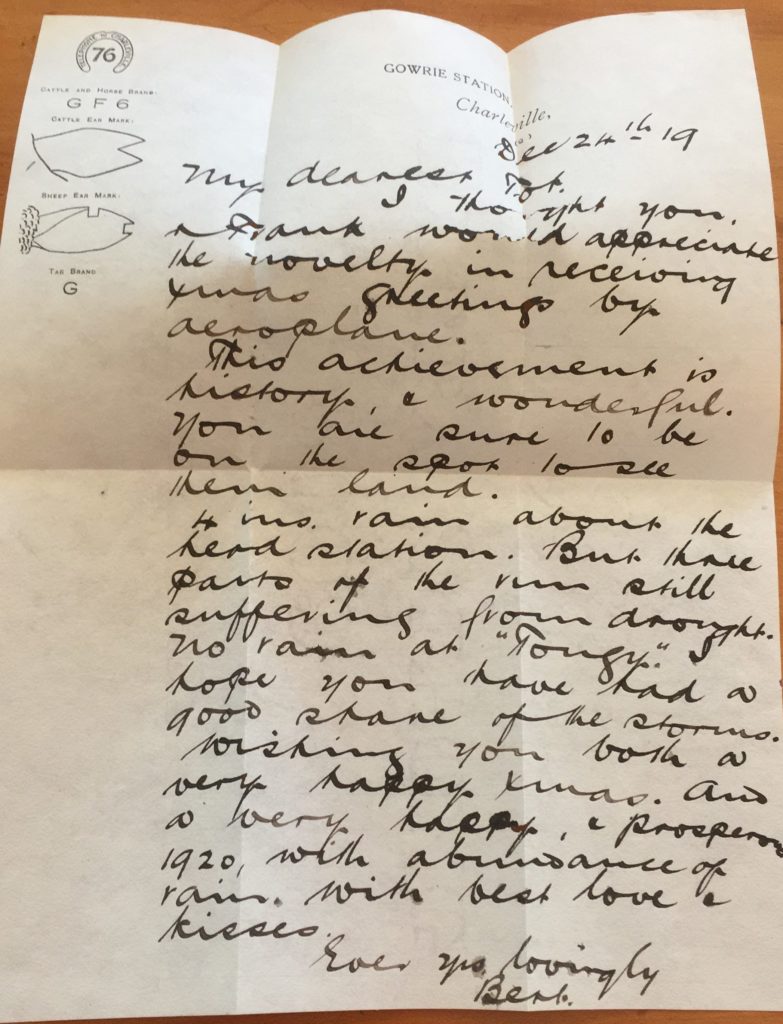 TELEPHONE No CHARLEVILLE
76
CATTLE AND HORSE BRAND.
G F 6
CATTLE EAR MARK.
SHEEP EAR MARK.
TAR BRAND
G
GOWRIE STATION,
Charleville,
Dec 24th 19
My dearest Tot.
I thought you,
& Frank would appreciate
the novelty in receiving
Xmas greetings by
aeroplane.
This achievement is
history, & wonderful.
You are sure to be
on the spot to see
them land.
4 ins. rain about the
head station. But three
parts of the run still
suffering from drought.
No rain at "Tongy". I
hope you have had a
good share of the storms.
Wishing you both a
very happy Xmas. And
a very happy, & prosperous
1920, with abundance of
rain. With best love &
kisses.
Ever yrs. lovingly
Bert.